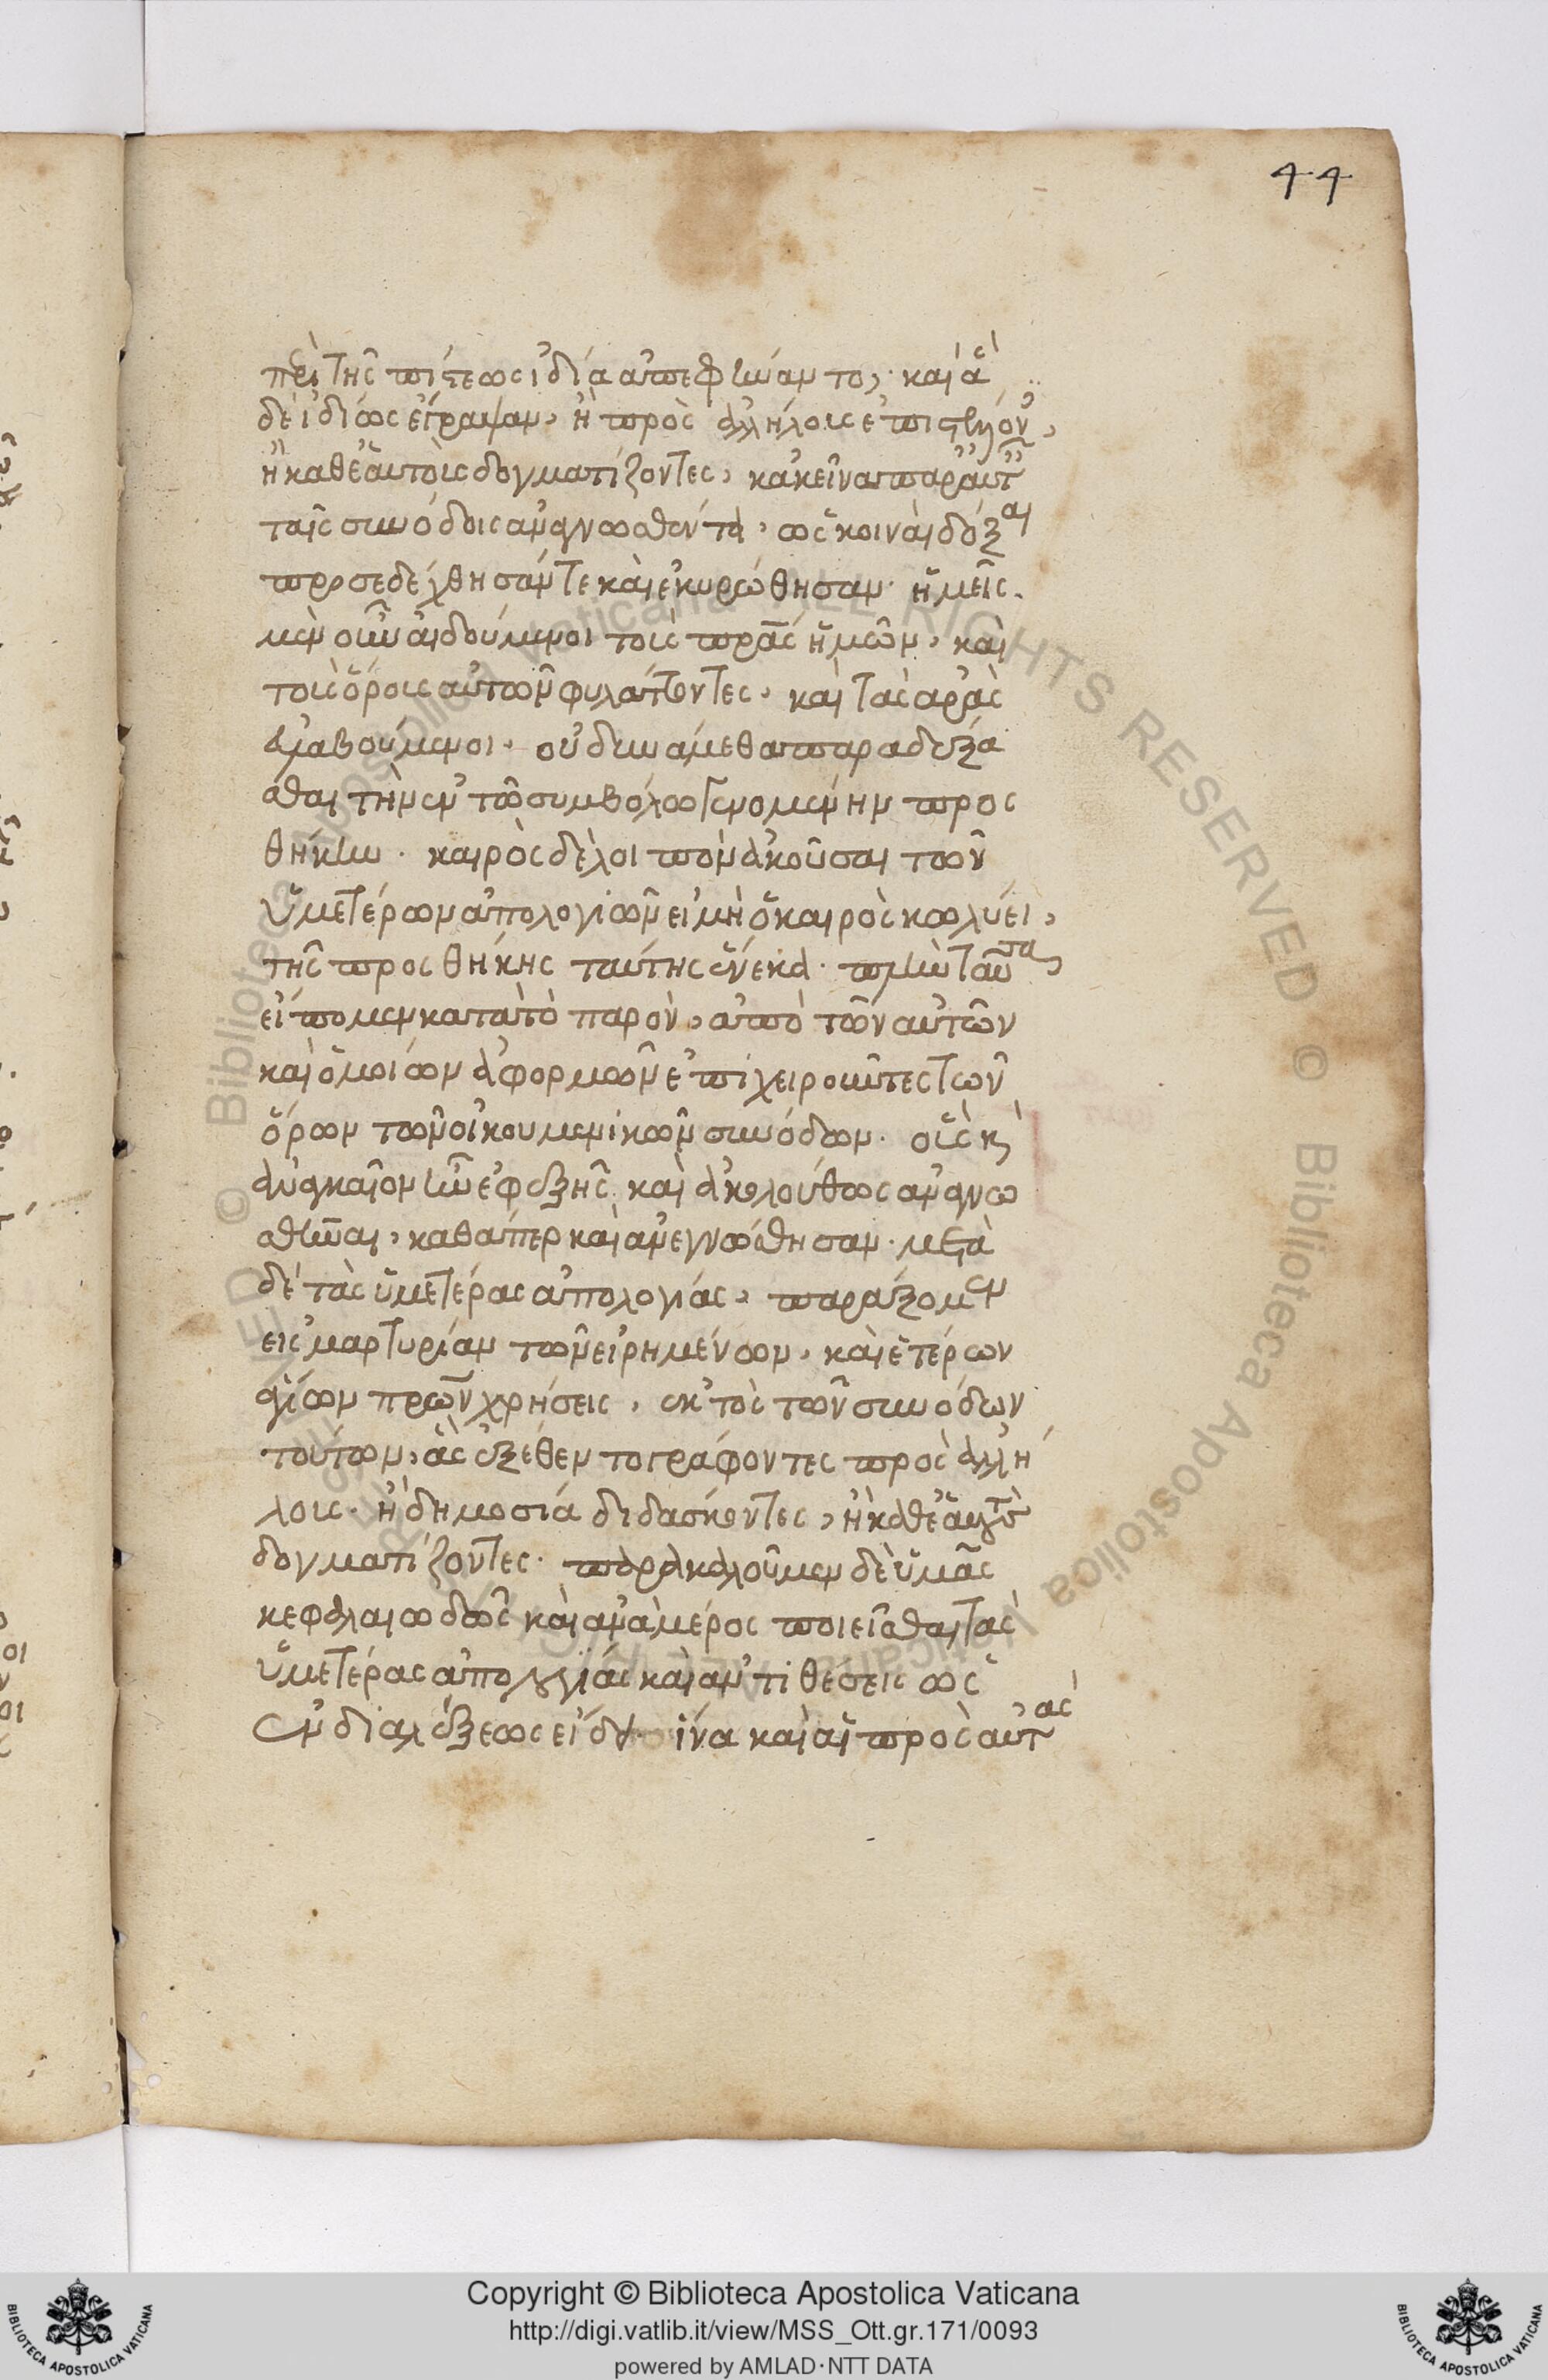 44
περὶ τῆς πίστεως ἰδία ἀπεφήναντο, καὶ ἃ
δὲ ἰδίως ἔγραψαν, ἢ πρὸς ἀλλήλους ἐπιστέλλον,
ἢ καθ' ἑαυτοὺς δογματίζοντες, κἀκεῖνα παρ' αὐτ
ταῖς συνόδοις ἀναγνωσθέντα, ὡς κοιναὶ δόξαι
προσεδέχθησάν τε καὶ ἐκυρώθησαν· ἡμεῖς
μὲν οὖν αἰδούμενοι τοὺς πρας ἡμῶν, καὶ
τοὺς ὅρους αὐτῶν φυλάττοντες, καὶ τὰς ἀρὰς
εὐλαβούμενοι, οὐ δυνάμεθα παραδέξα
σθαι τὴν ἐν τῷ συμβόλῳ γενομένην προσ
θήκην. καιρὸς δὲ λοιπὸν ἀκοῦσαι τῶν
ὑμετέρων ἀπολογιῶν εἰ μὴ ὁ καιρὸς κωλύει,
τῆς προσθήκης ταύτης ἕνεκα. πλὴν ταῦτα
εἴπομεν κατὰ τὸ παρὸν, ἀπὸ τῶν αὐτῶν
καὶ ὁμοίων ἀφορμῶν ἐπιχειροῦντες τῶν
ὅρων τῶν οἰκουμενικῶν συνόδων. οὓς κ
ἀναγκαῖον ἦν ἐφεξῆς καὶ ἀκολούθως ἀναγνω
σθῆναι, καθάπερ καὶ ἀνεγνώσθησαν. μετὰ
δὲ τὰς ὑμετέρας ἀπολογίας, παράξομεν
εἰς μαρτυρίαν τῶν εἰρημένων, καὶ ἑτέρων
ἁγίων πρων χρήσεις, ἐκτὸς τῶν συνόδων
τούτων, ἃς ἐξέθεντο γράφοντες πρὸς ἀλλή
λους. ἢ δημοσία διδάσκοντες, ἢ καθ' ἑαυτοὺς
δογματίζοντες. παρακαλοῦμεν δὲ ὑμᾶς
κεφαλαιωδῶς καὶ ἀνὰ μέρος ποιεῖσθαι τὰς
ὑμετέρας ἀπολογίας καὶ ἀντιθέσεις ὡς
ἐν διαλέξεως εἴδει ἵνα καὶ αἱ πρὸς αὐτὰς
© Biblioteca Apostolica Vaticana ALL RIGHTS RESERVED © Biblioteca Apostolica Vaticana
Copyright © Biblioteca Apostolica Vaticana
http://digi.vatlib.it/view/MSS_Ott.gr.171/0093
powered by AMLAD·NTT DATA
BIBLIOTECA APOSTOLICA VATICANA
BIBLIOTECA APOSTOLICA VATICANA